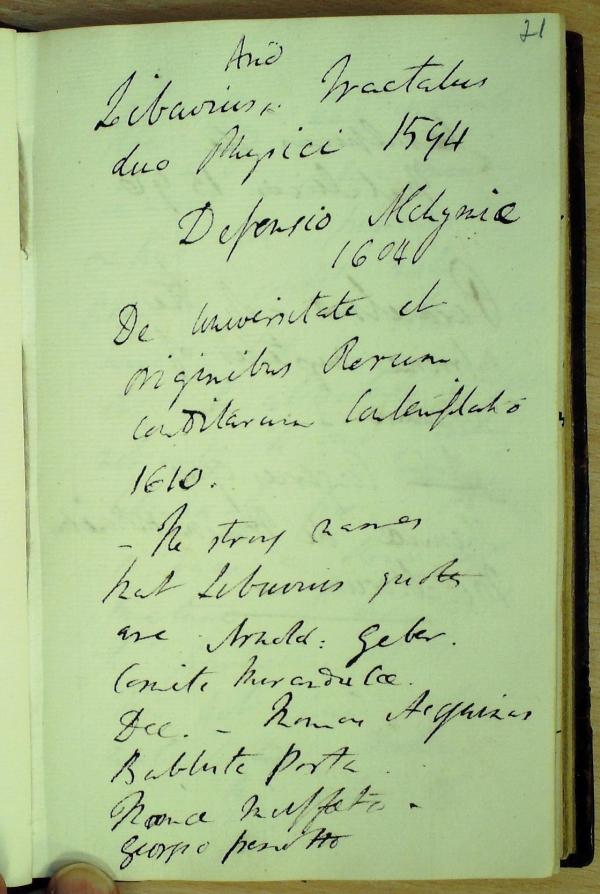 21
And
Libavius, Tractatus
duo Physici 1594
Defensio Alchymiæ
1604
De Universitate et
originibus Rerum
conditarum Contemplatio
1610.
- The strong names
that Libavius quotes
are Arnold: Geber.
Comite Mirandulæ.
Dec. - Thomas Aquinas
Babtista Porta
Thoma Muffeto.
Georgio penotto